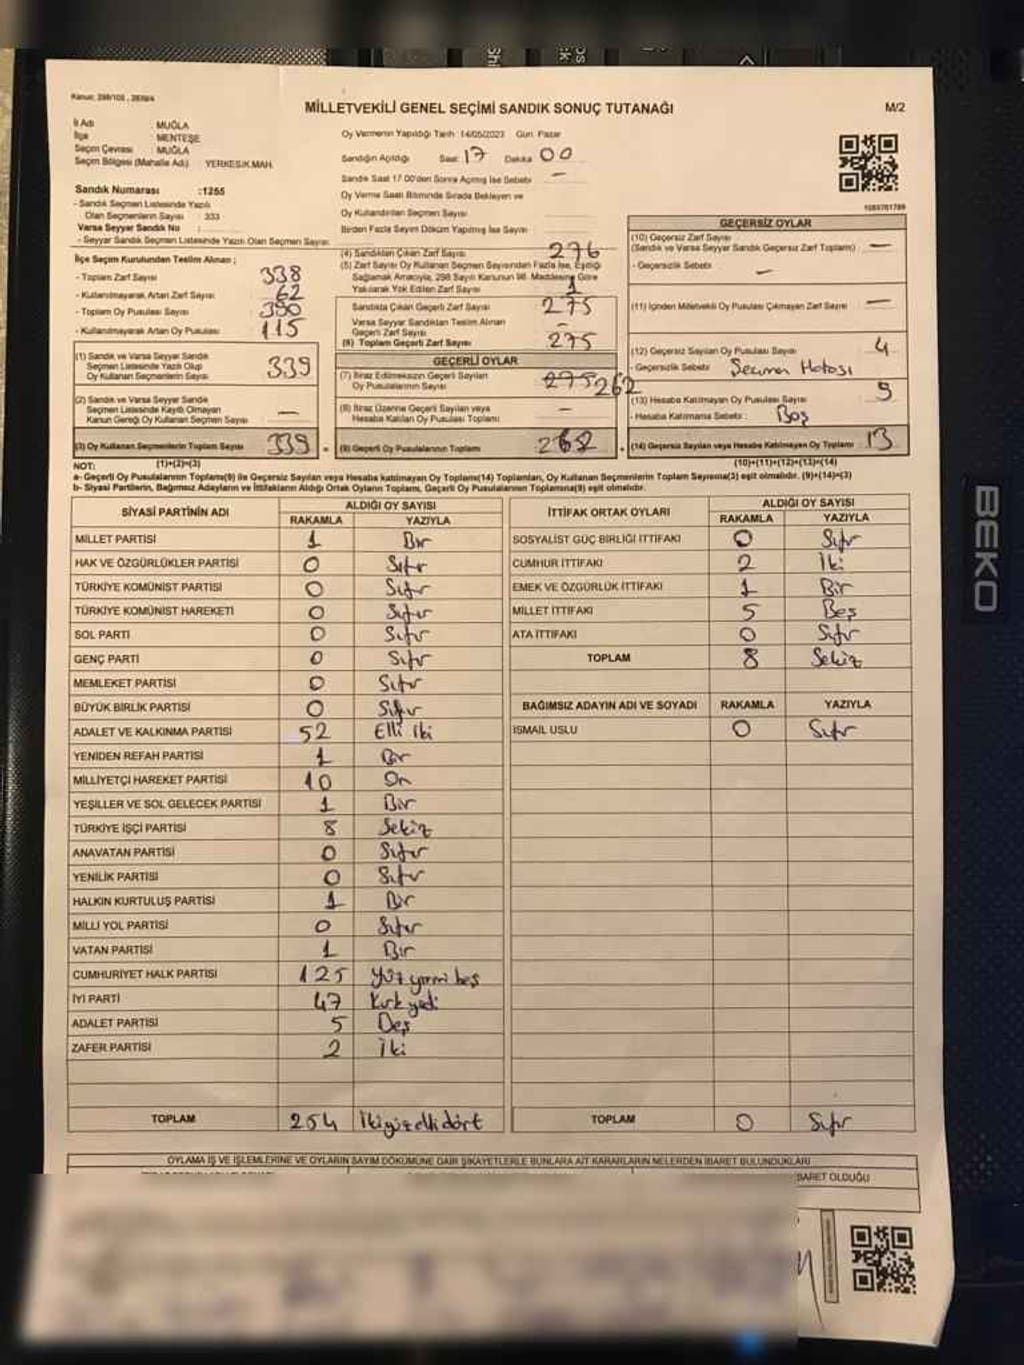 Kanun: 298/105, 283/a/a
MİLLETVEKİLİ GENEL SEÇİMİ SANDIK SONUÇ TUTANAĞI
M/2
İl Adı MUĞLA
İlçe MENTEŞE
Seçim Çevresi MUĞLA
Seçim Bölgesi (Mahalle Adı) YERKESİK MAH.
Sandık Numarası :1255
- Sandık Seçmen Listesinde Yazılı
Olan Seçmenlerin Sayısı : 333
Varsa Seyyar Sandık No :
- Seyyar Sandık Seçmen Listesinde Yazılı Olan Seçmen Sayısı:
İlçe Seçim Kurulundan Teslim Alınan ;
- Toplam Zarf Sayısı 338
- Kullanılmayarak Artan Zarf Sayısı 62
- Toplam Oy Pusulası Sayısı 390
- Kullanılmayarak Artan Oy Pusulası 115
(1) Sandık ve Varsa Seyyar Sandık
Seçmen Listesinde Yazılı Olup
Oy Kullanan Seçmenlerin Sayısı 339
(2) Sandık ve Varsa Seyyar Sandık
Seçmen Listesinde Kayıtlı Olmayan
Kanun Gereği Oy Kullanan Seçmen Sayısı —
(3) Oy Kullanan Seçmenlerin Toplam Sayısı 339
(1)+(2)=(3)
Oy Vermenin Yapıldığı Tarih :14/05/2023 Gün: Pazar
Sandığın Açıldığı Saat: 17 Dakika 00
Sandık Saat 17.00'den Sonra Açılmış İse Sebebi —
Oy Verme Saati Bitiminde Sırada Bekleyen ve
Oy Kullandırılan Seçmen Sayısı
Birden Fazla Seçim Döküm Yapılmış İse Sayısı
(4) Sandıktan Çıkan Zarf Sayısı 276
(5) Zarf Sayısı Oy Kullanan Seçmen Sayısından Fazla İse, Eşitliği
Sağlamak Amacıyla, 298 Sayılı Kanunun 98. Maddesine Göre
Yakılarak Yok Edilen Zarf Sayısı 1
Sandıkta Çıkan Geçerli Zarf Sayısı 275
Varsa Seyyar Sandıktan Teslim Alınan
Geçerli Zarf Sayısı —
(6) Toplam Geçerli Zarf Sayısı 275
GEÇERLİ OYLAR
(7) İtiraz Edilmeksizin Geçerli Sayılan
Oy Pusulalarının Sayısı 275 262
(8) İtiraz Üzerine Geçerli Sayılan veya
Hesaba Katılan Oy Pusulası Toplamı —
(9) Geçerli Oy Pusulalarının Toplamı 262
1083761789
GEÇERSİZ OYLAR
(10) Geçersiz Zarf Sayısı
(Sandık ve Varsa Seyyar Sandık Geçersiz Zarf Toplamı) —
- Geçersizlik Sebebi: —
(11) İçinden Milletvekili Oy Pusulası Çıkmayan Zarf Sayısı —
(12) Geçersiz Sayılan Oy Pusulası Sayısı 4
- Geçersizlik Sebebi: Seçmen Hatası
(13) Hesaba Katılmayan Oy Pusulası Sayısı 9
- Hesaba Katılmama Sebebi : Boş
(14) Geçersiz Sayılan veya Hesaba Katılmayan Oy Toplamı 13
(10)+(11)+(12)+(13)=(14)
NOT:
a- Geçerli Oy Pusulalarının Toplamı(9) ile Geçersiz Sayılan veya Hesaba katılmayan Oy Toplamı(14) Toplamları, Oy Kullanan Seçmenlerin Toplam Sayısına(3) eşit olmalıdır. (9)+(14)=(3)
b- Siyasi Partilerin, Bağımsız Adayların ve İttifakların Aldığı Ortak Oyların Toplamı, Geçerli Oy Pusulalarının Toplamına(9) eşit olmalıdır.
SİYASİ PARTİNİN ADI ALDIĞI OY SAYISI
RAKAMLA YAZIYLA
MİLLET PARTİSİ 1 Bir
HAK VE ÖZGÜRLÜKLER PARTİSİ 0 Sıfır
TÜRKİYE KOMÜNİST PARTİSİ 0 Sıfır
TÜRKİYE KOMÜNİST HAREKETİ 0 Sıfır
SOL PARTİ 0 Sıfır
GENÇ PARTİ 0 Sıfır
MEMLEKET PARTİSİ 0 Sıfır
BÜYÜK BİRLİK PARTİSİ 0 Sıfır
ADALET VE KALKINMA PARTİSİ 52 Elli iki
YENİDEN REFAH PARTİSİ 1 Bir
MİLLİYETÇİ HAREKET PARTİSİ 10 On
YEŞİLLER VE SOL GELECEK PARTİSİ 1 Bir
TÜRKİYE İŞÇİ PARTİSİ 8 Sekiz
ANAVATAN PARTİSİ 0 Sıfır
YENİLİK PARTİSİ 0 Sıfır
HALKIN KURTULUŞ PARTİSİ 1 Bir
MİLLİ YOL PARTİSİ 0 Sıfır
VATAN PARTİSİ 1 Bir
CUMHURİYET HALK PARTİSİ 125 Yüz yirmi beş
İYİ PARTİ 47 Kırk yedi
ADALET PARTİSİ 5 Beş
ZAFER PARTİSİ 2 İki
TOPLAM 254 İkiyüzellidört
İTTİFAK ORTAK OYLARI ALDIĞI OY SAYISI
RAKAMLA YAZIYLA
SOSYALİST GÜÇ BİRLİĞİ İTTİFAKI 0 Sıfır
CUMHUR İTTİFAKI 2 İki
EMEK VE ÖZGÜRLÜK İTTİFAKI 1 Bir
MİLLET İTTİFAKI 5 Beş
ATA İTTİFAKI 0 Sıfır
TOPLAM 8 Sekiz
BAĞIMSIZ ADAYIN ADI VE SOYADI RAKAMLA YAZIYLA
İSMAİL USLU 0 Sıfır
TOPLAM 0 Sıfır
OYLAMA İŞ VE İŞLEMLERİNE VE OYLARIN SAYIM DÖKÜMÜNE DAİR ŞİKAYETLERLE BUNLARA AİT KARARLARIN NELERDEN İBARET BULUNDUKLARI
BARET OLDUĞU
BEKO